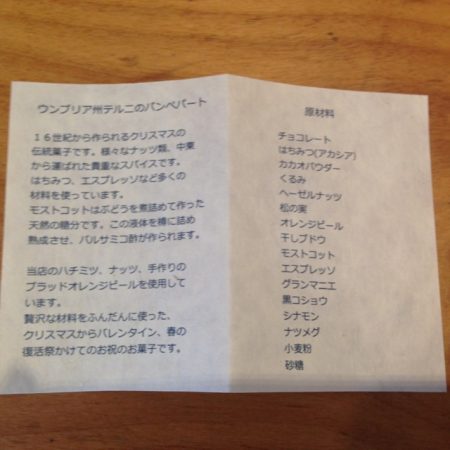 ウンブリア州テルニのパンペパート
16世紀から作られるクリスマスの
伝統菓子です。様々なナッツ類、中東
から運ばれた貴重なスパイスです。
はちみつ、エスプレッソなど多くの
材料を使っています。
モストコットはぶどうを煮詰めて作った
天然の糖分です。この液体を樽に詰め
熟成させ、バルサミコ酢が作られます。
当店のハチミツ、ナッツ、手作りの
ブラッドオレンジピールを使用して
います。
贅沢な材料をふんだんに使った、
クリスマスからバレンタイン、春の
復活祭かけてのお祝のお菓子です。
原材料
チョコレート
はちみつ(アカシア)
カカオパウダー
くるみ
ヘーゼルナッツ
松の実
オレンジピール
干しブドウ
モストコット
エスプレッソ
グランマニエ
黒コショウ
シナモン
ナツメグ
小麦粉
砂糖